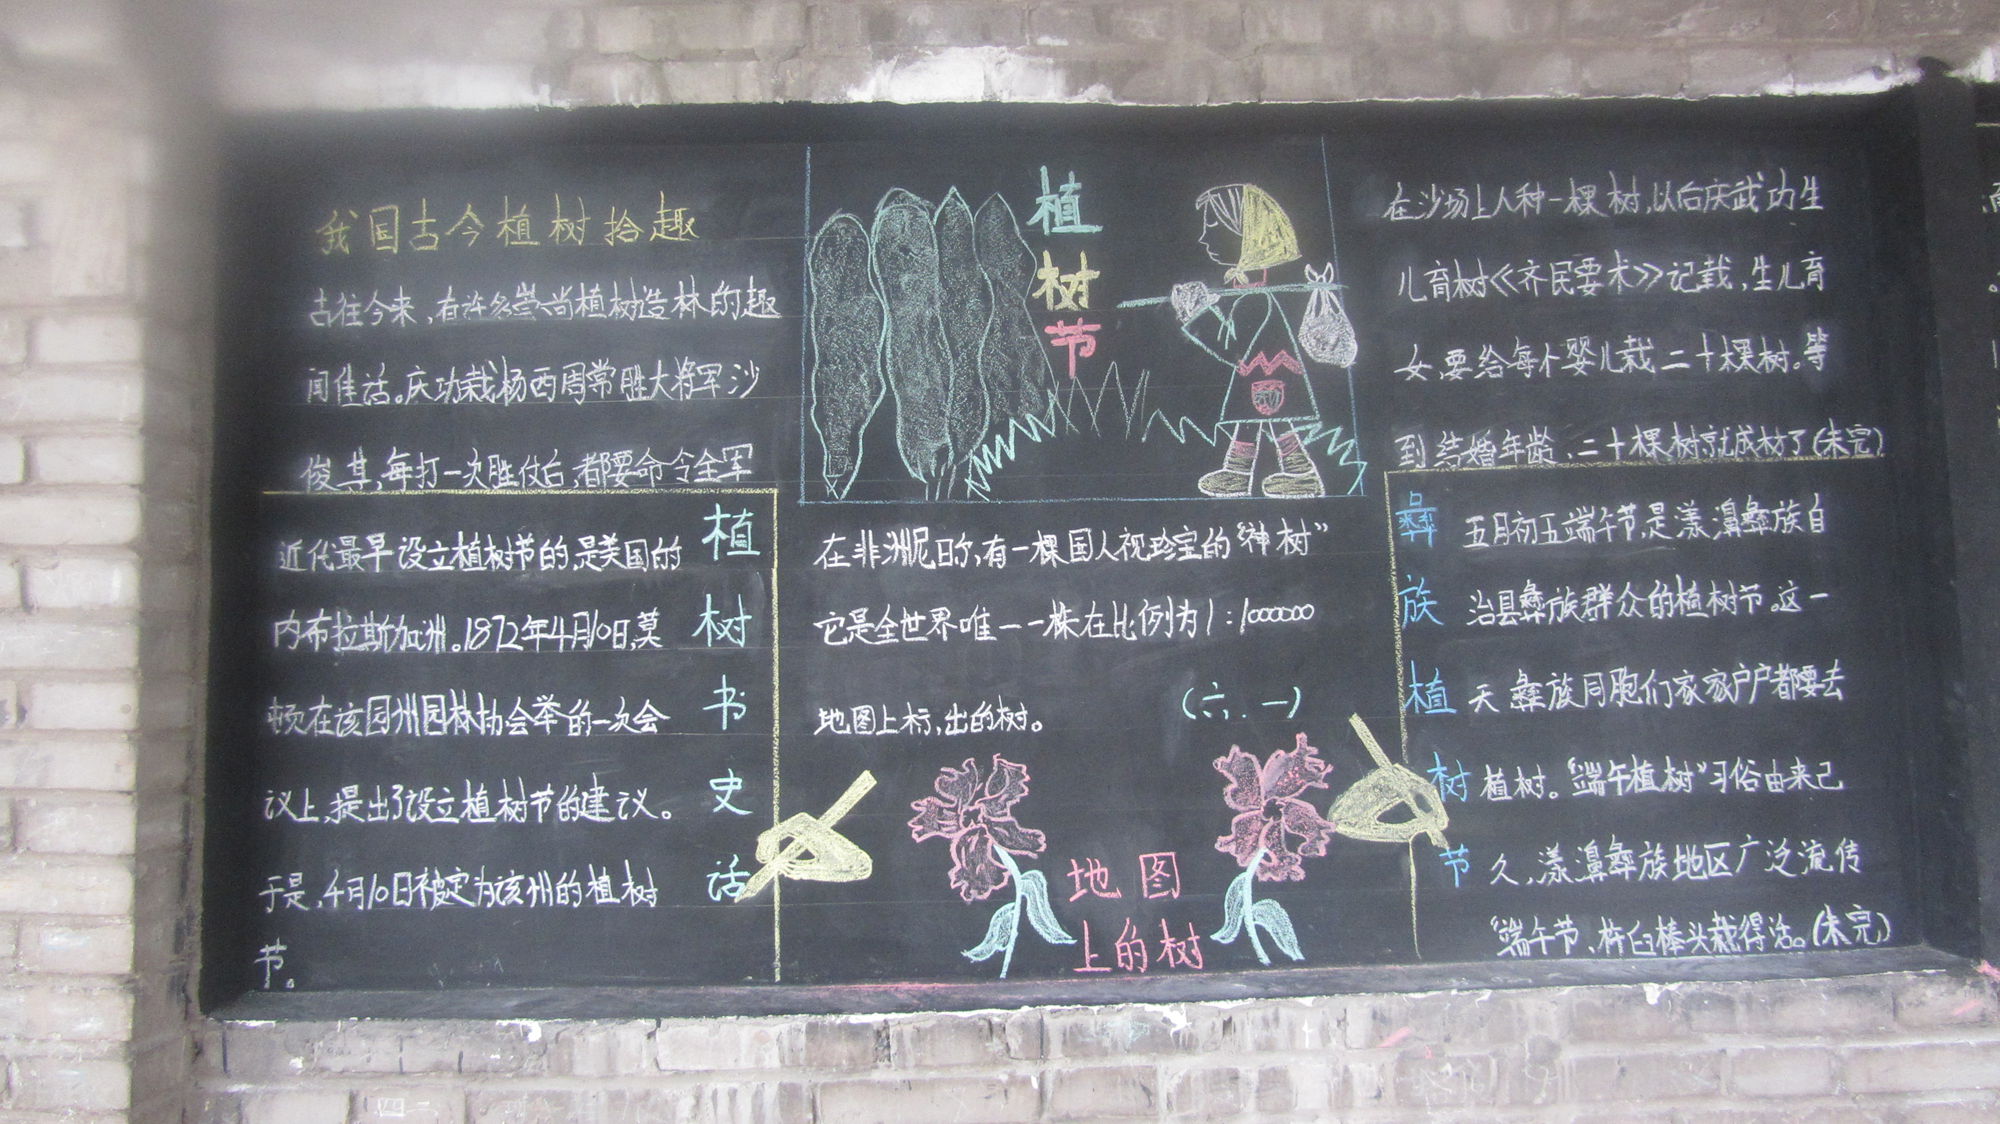 我国古今植树拾趣
古往今来,有许多崇尚植树造林的趣
闻佳话。庆功栽杨西周常胜大将军沙
俊其,每打一次胜仗白,都要命令全军
在沙场上人种一棵树,以后庆武功生
儿育树《齐民要术》记载,生儿育
女,要给每个婴儿栽二十棵树。等
到结婚年龄,二十棵树就成材了(未完)
植
树
节
近代最早设立植树节的是美国的
内布拉斯加洲。1872年4月10日,莫
顿在该园州园林协会举的一次会
议上,提出了设立植树节的建议。
于是,4月10日被定为该州的植树
节。
植
树
书
史
话
在非洲尼日尔,有一棵国人视珍宝的“神树”
它是全世界唯一一株在比例为1:1000000
地图上标,出的树。
(六.一)
地图
上的树
彝
族
植
树
节
五月初五端午节,是漾濞彝族自
治县彝族群众的植树节。这一
天彝族同胞们家家户户都要去
植树。“端午植树”习俗由来已
久,漾濞彝族地区广泛流传
“端午节、杵臼棒头栽得活。(未完)